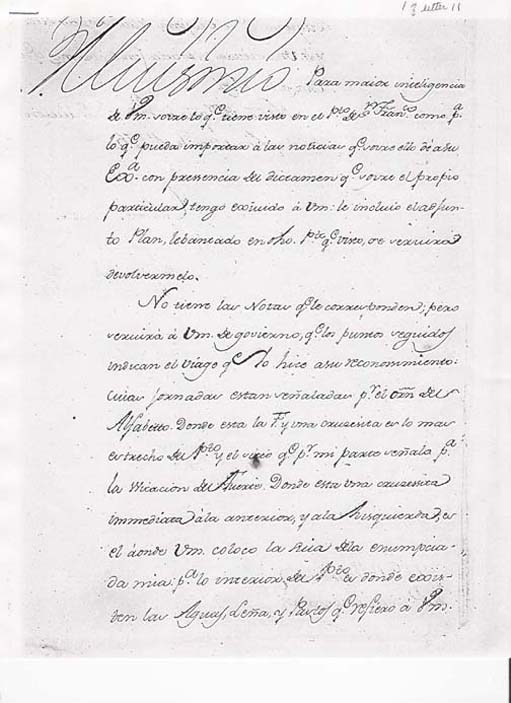 Muy S.or mio Para maior inteligencia
de Vm. sovre lo q.e tiene visto en el P.to de S.n Fran.co como p.a
lo q.e pueda importar à las noticias q.e sovre ello dè a su
Ex.a con pressencia del dictamen q.e sovre el propio
particular, tengo exiuido à Vm: le incluio el adjun-
to Plan, lebantado en dho. P.to q.e visto, se seruirà
devolvermelo.
No tiene las Notas q.e le corresponden; pero
seruirà à Vm. de govierno, q.e los puntos seguidos
indican el viage q.e Yo hice a su reconosimiento:
cuias Jornadas estan señaladas p.r el orn. del
Alfabetto. Donde esta la F. y una cruzesita es lo mas
estrecho del P.to y el sitio q.e p.r mi parte señalo p.a
la vicacion del Fuerte. Donde esta una cruzesita
immediata à la anterior, y a la hisquierda, es
el donde Vm. coloco la suia de la enumpcia-
da mia: p.a lo interior del P.to es donde exis-
ten las Aguas, Leña, y Pastos q.e refiero à Vm.